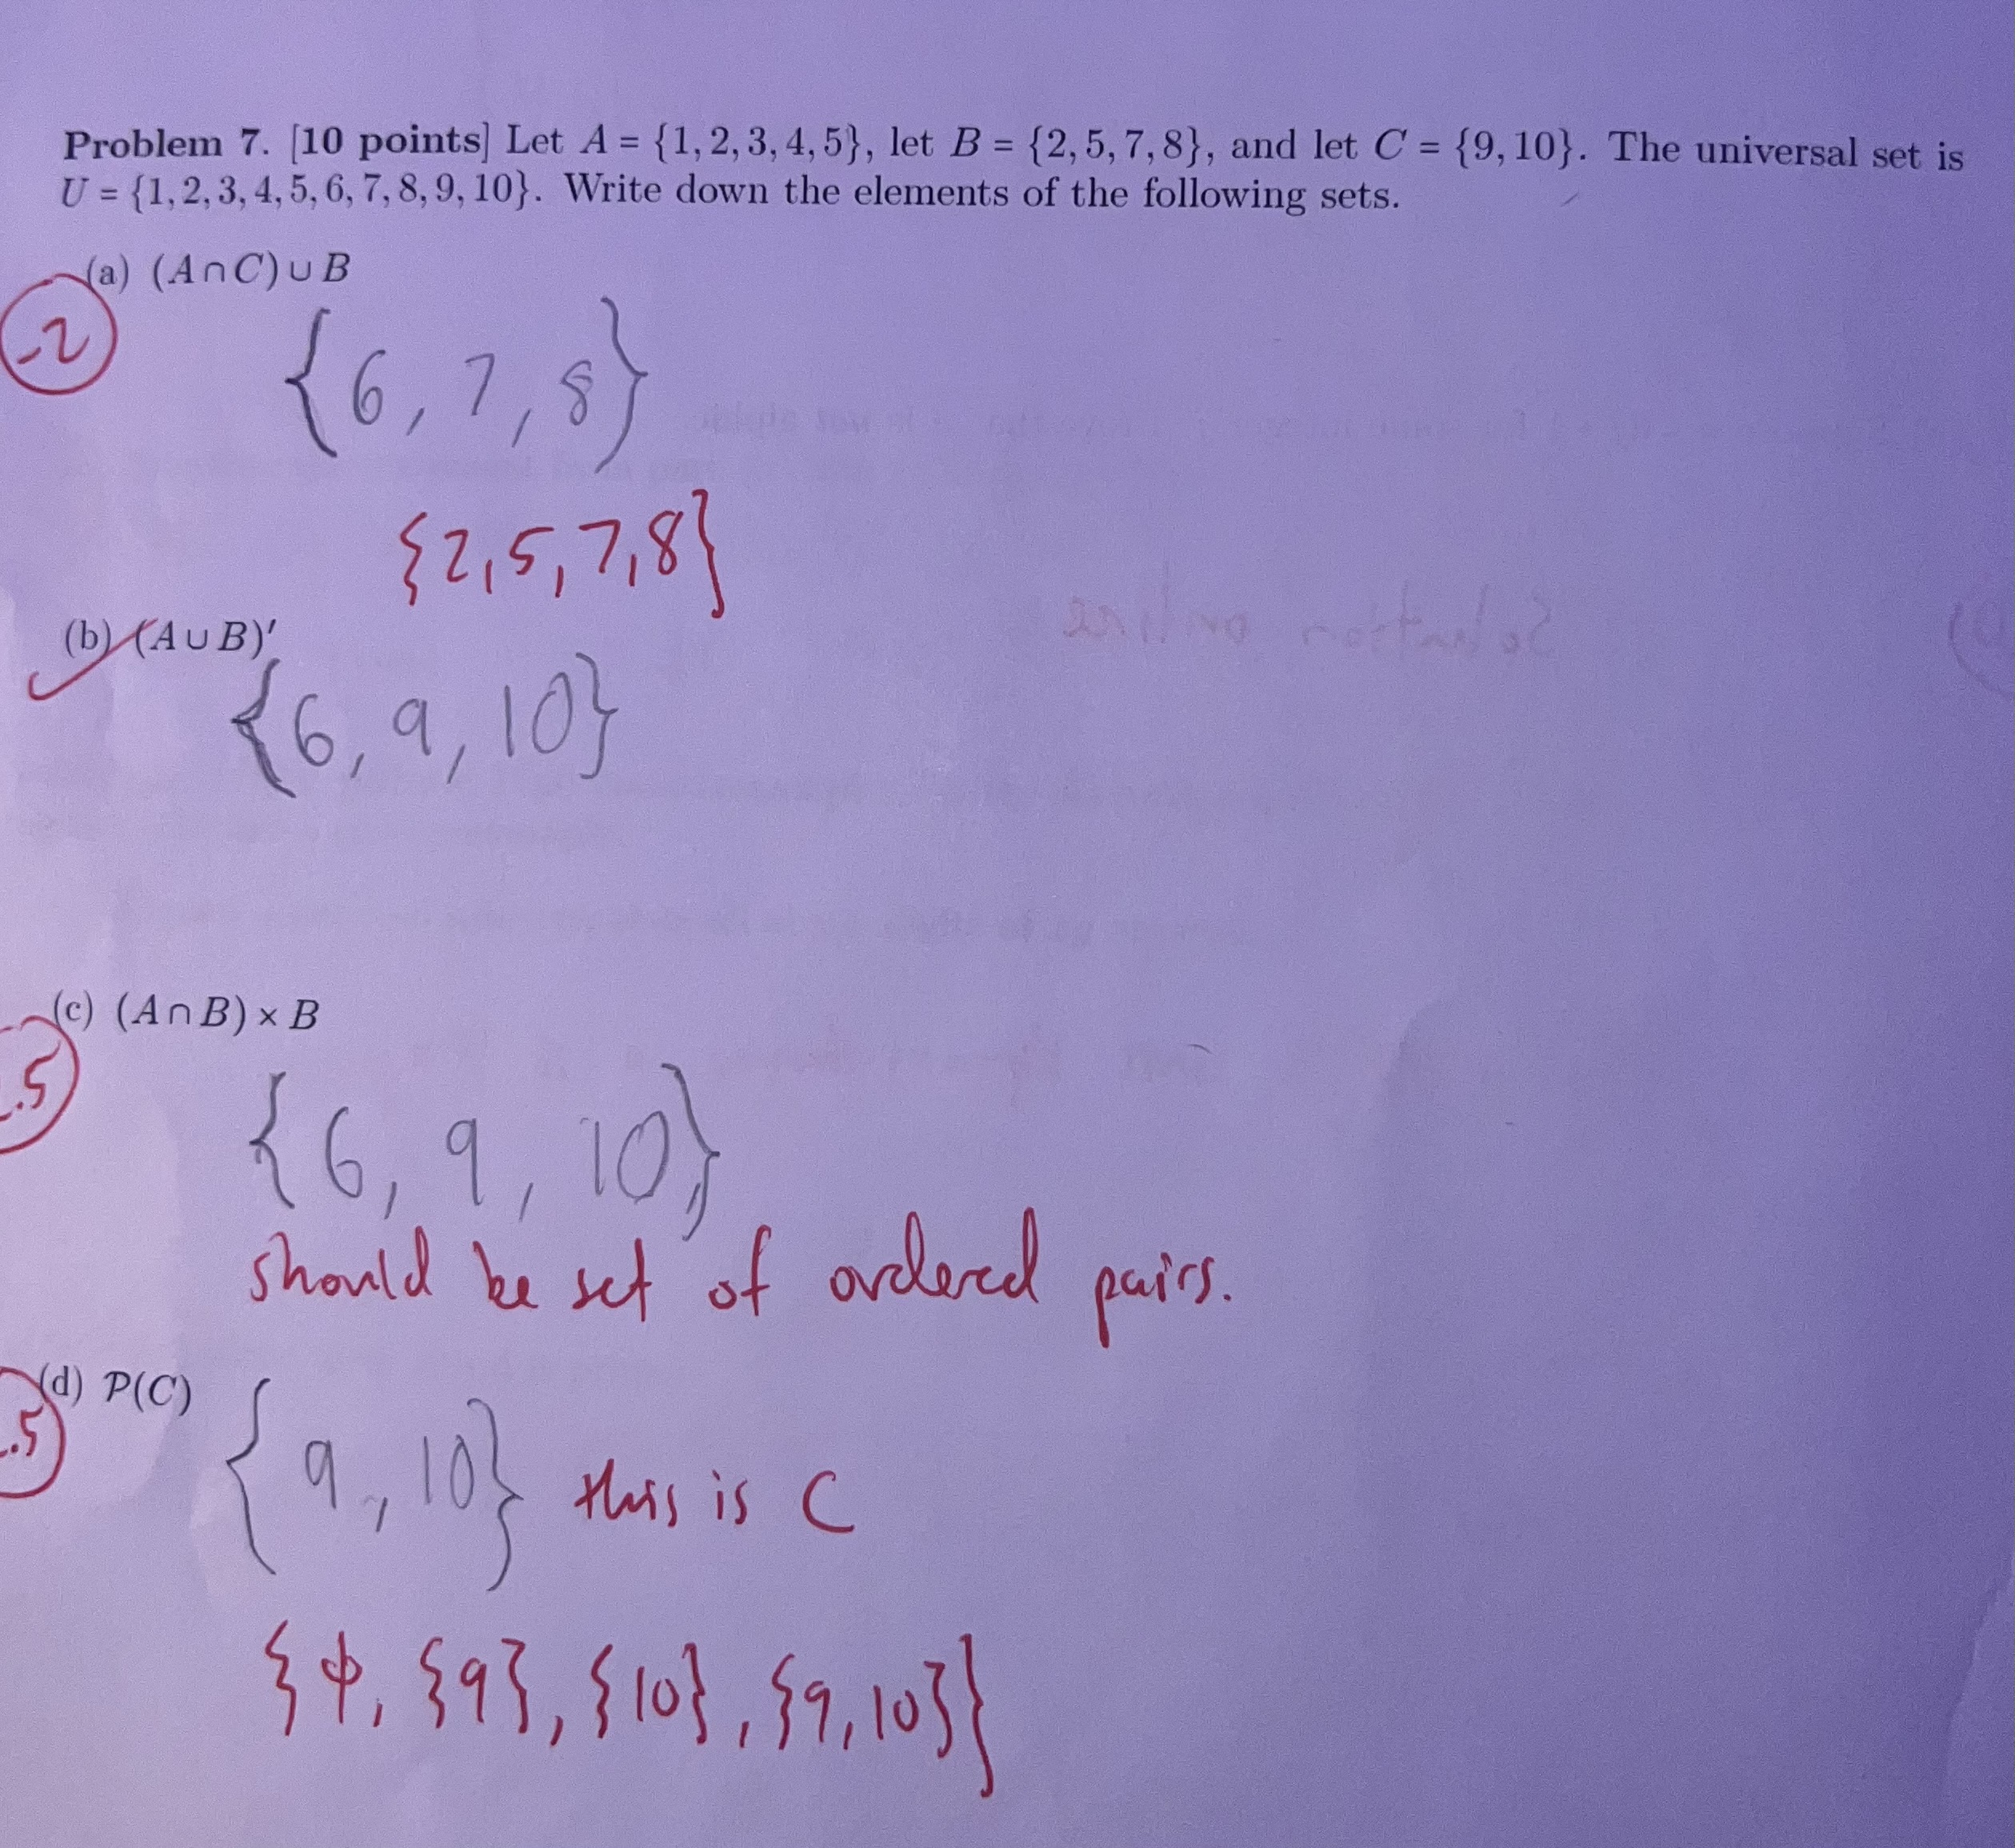 Problem 7. [10 points] Let A = {1, 2, 3, 4, 5}, let B = {2, 5, 7, 8}, and let C = {9, 10}. The universal set is
U = {1, 2, 3, 4, 5, 6, 7, 8, 9, 10}. Write down the elements of the following sets.
(a) (A ∩ C) ∪ B
-2
{6, 7, 8}
{2, 5, 7, 8}
(b) (A ∪ B)′
{6, 9, 10}
(c) (A ∩ B) × B
.5
{6, 9, 10}
should be set of ordered pairs.
(d) P(C)
.5
{9, 10} this is C
{ϕ, {9}, {10}, {9, 10}}